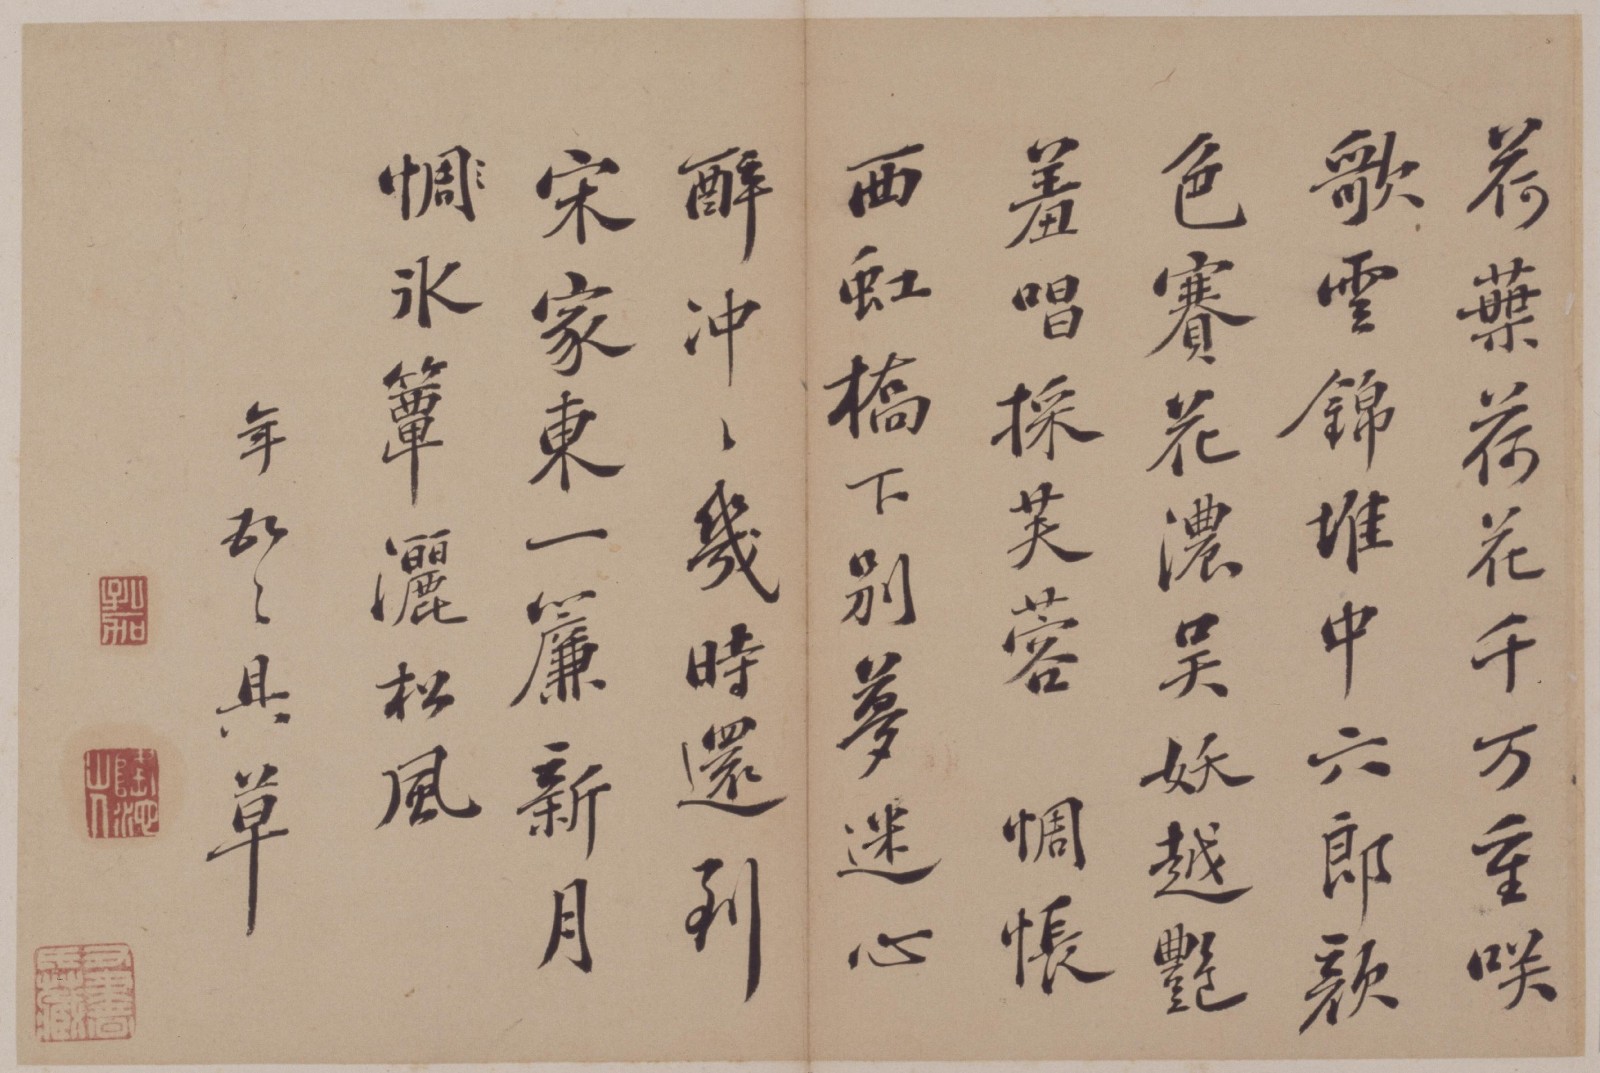 荷葉荷花千万重咲
歌雲錦堆中六郎顔
色賽花濃吴妖越艷
羞唱採芙蓉　惆悵
西虹橋下別夢迷心
醉冲〻幾時還到
宋家東一簾新月
惆氷簟灑松風
年弟具草